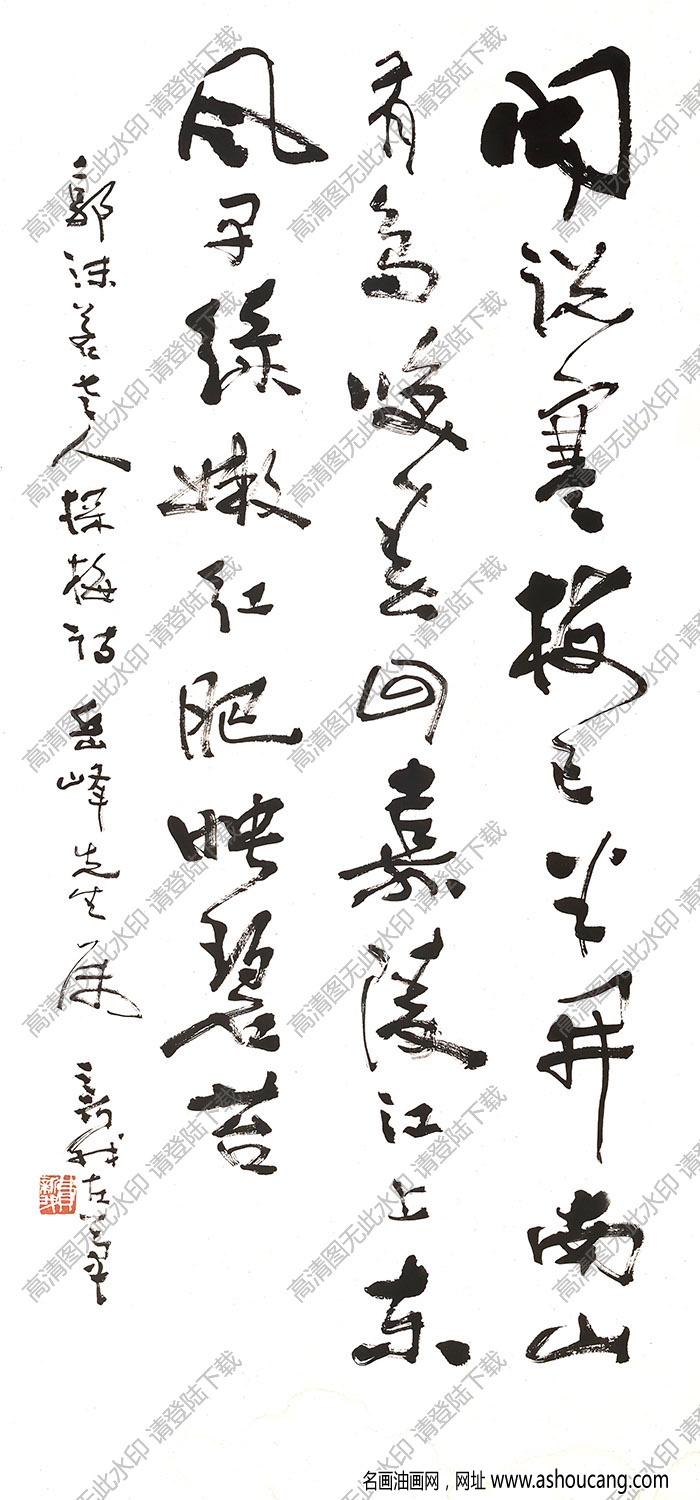 闻说寒梅已半开南山
有鸟唤春回嘉陵江上东
风早绿嫩红肥映碧苔
郭沫若老人探梅诗 岳峰先生属 新我左笔
高清图无此水印 请登陆下载
名画油画网，网址 www.ashoucang.com